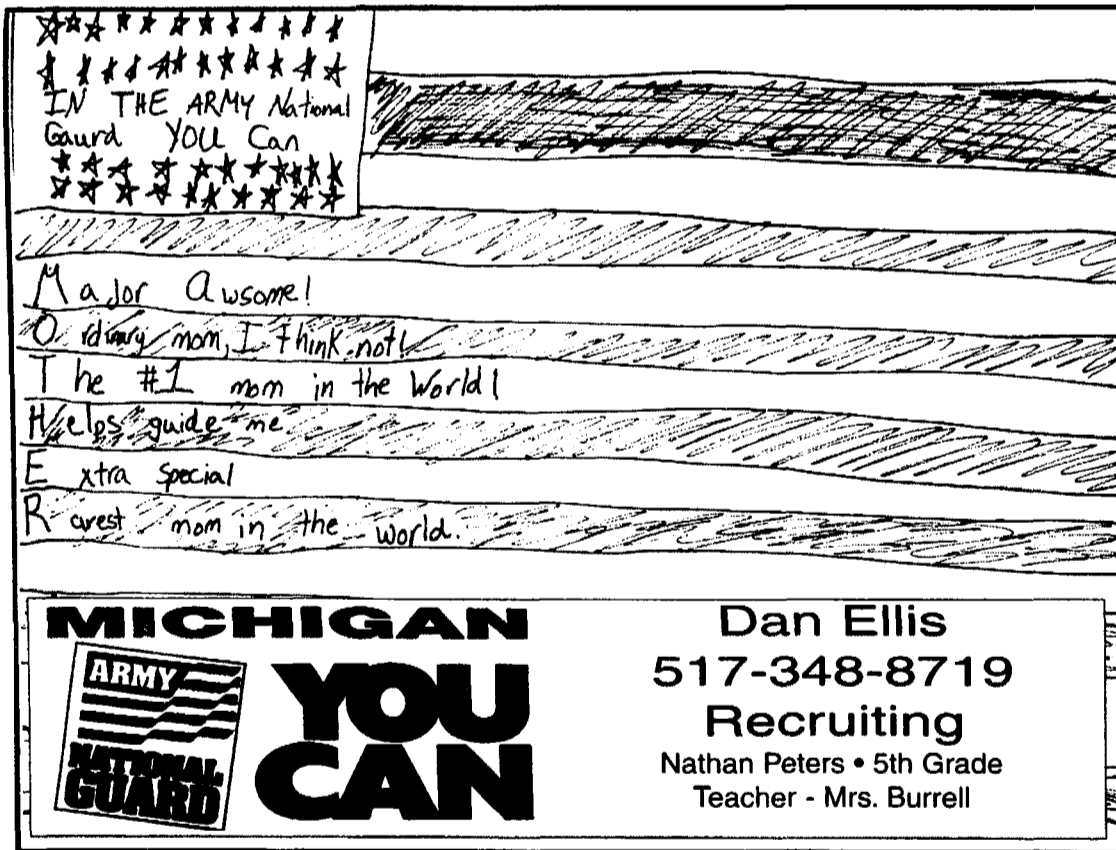 IN THE ARMY National
Gaurd YOU Can
Major Awsome!
Ordinary mom, I think not!
The #1 mom in the World!
Helps guide me.
Extra special
Rarest mom in the world.
MICHIGAN
ARMY
NATIONAL
GUARD
YOU
CAN
Dan Ellis
517-348-8719
Recruiting
Nathan Peters • 5th Grade
Teacher - Mrs. Burrell